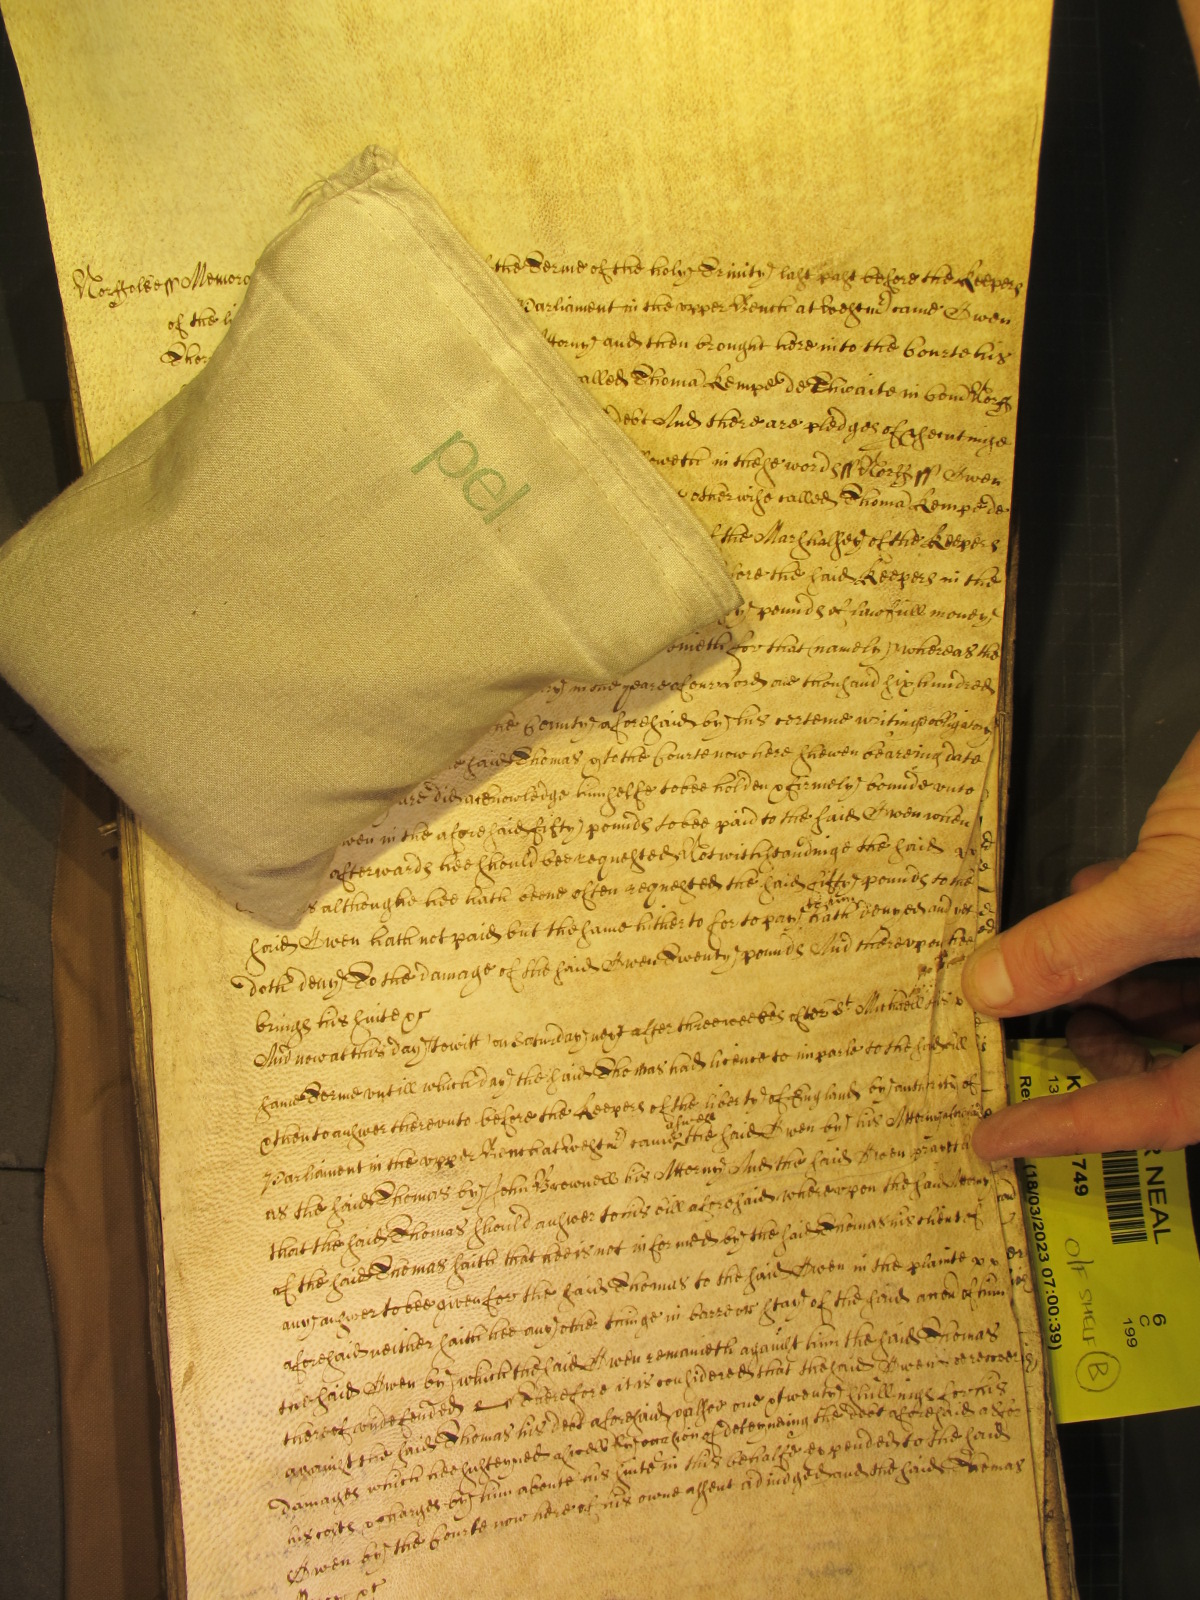 Norffolke ss Memora
the Terme of the holy Trinity last past before the Keepers
of the li
Parliament in the upper Bench at Westm came Owen
torny and then brought here into the Courte his
called Thomas Kempe de Thwaite in Com Norff
debt And there are pledges of prosecutinge
oweth in these words ss Norff ss Owen
otherwise called Thomas Kempe de
the Marshalsey of the Keepers
fore the said Keepers in the
pounds of lawfull money
for that (namely) whereas the
in the yeare of our Lord one thousand six hundred
the County aforesaid by his certeine writing obligatory
said Thomas to the Courte now here shewen beareing date
did acknowledge himselfe to bee holden & firmely bounde unto
wen in the aforesaid fifty pounds to bee paid to the said Owen when
afterwards hee should bee requested Notwithstandinge the said
s althoughe hee hath beene often requested the said fifty pounds to the
said Owen hath not paid but the same hitherto for to pay hath denyed and yet
doth deny To the damage of the said Owen Twenty pounds And thereupon hee
brings his suite &c
And now at this day to witt on Saturday next after three weekes after St Michaell
same Terme untill which day the said Thomas had licence to imparle to the said bill
& then to answer thereunto before the Keepers of the liberty of England by authority of
Parliament in the upper Bench at Westm came aswell the said Owen by his Attorny aforesaid
as the said Thomas by John Brownell his Attorny And the said Owen prayeth
that the said Thomas should answer to his bill aforesaid whereupon the said Attorny
of the said Thomas saith that hee is not informed by the said Thomas his client of
any answer to bee given for the said Thomas to the said Owen in the plainte
aforesaid neither saith hee any other thinge in barre or stay of the said accon of him
the said Owen by which the said Owen remaineth against him the said Thomas
thereof undefended Therefore it is considered that the said Owen doe recover
against the said Thomas his debt aforesaid & allsoe one & twenty shillings for his
damages which hee susteyned aswell by occasion of deteyneing the debt aforesaid as for
his costs & charges by him aboute his suite in this behalfe expended to the said
Owen by the Courte now here of his owne assent adiudged and the said Thomas
&c
pel
R NEAL
749
6
C
199
(18/03/2023 07:00:39)
O/F SHELF
B